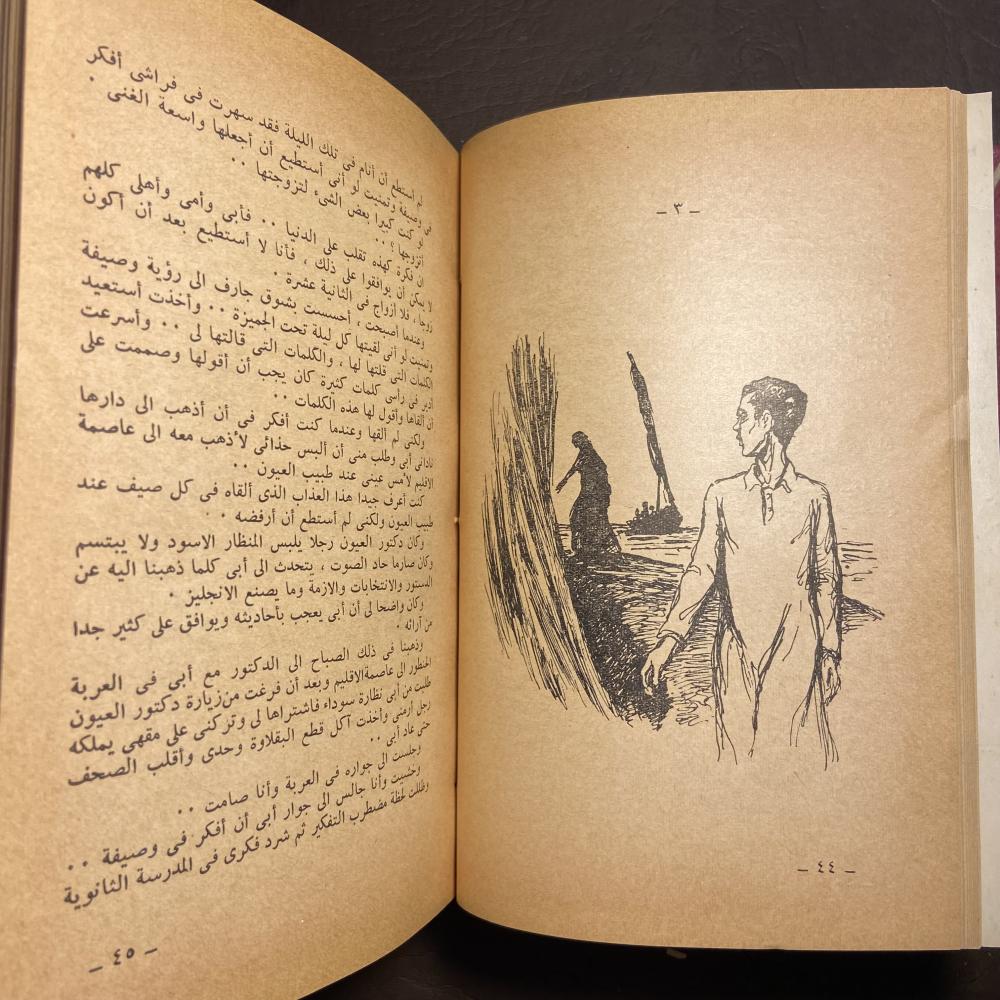 - ٣ -
- ٤٤ -
لم أستطع أن أنام فى تلك الليلة فقد سهرت فى فراشى أفكر
فى وصيفة وتمنيت لو أنى أستطيع أن أجعلها واسعة الغنى .
لو كنت كبيرا بعض الشىء لتزوجتها ..
أتزوجها ؟ ..
ان فكرة كهذه تقلب على الدنيا .. فأبى وأمى وأهلى كلهم
لا يمكن أن يوافقوا على ذلك ، فأنا لا أستطيع بعد أن أكون
زوجا ، فلا أزواج فى الثانية عشرة .
وعندما أصبحت ، أحسست بشوق جارف الى رؤية وصيفة
وتمنيت لو أنى لقيتها كل ليلة تحت الجميزة .. وأخذت أستعيد
الكلمات التى قلتها لها ، والكلمات التى قالتها لى .. وأسرعت
أدير فى رأسى كلمات كثيرة كان يجب أن أقولها وصممت على
أن ألقاها وأقول لها هذه الكلمات ..
ولكنى لم ألقها وعندما كنت أفكر فى أن أذهب الى دارها
نادانى أبى وطلب منى أن ألبس حذائى لأذهب معه الى عاصمة
الاقليم لأمس عينى عند طبيب العيون ..
كنت أعرف جيدا هذا العذاب الذى ألقاه فى كل صيف عند
طبيب العيون ولكنى لم أستطع أن أرفضه ..
وكان دكتور العيون رجلا يلبس المنظار الاسود ولا يبتسم
وكان صارما حاد الصوت ، يتحدث الى أبى كلما ذهبنا اليه عن
الدستور والانتخابات والازمة وما يصنع الانجليز .
وكان واضحا لى أن أبى يعجب بأحاديثه ويوافق على كثير جدا
من آرائه .
وذهبنا فى ذلك الصباح الى الدكتور مع أبى فى العربة
الحنطور الى عاصمة الاقليم وبعد أن فرغت من زيارة دكتور العيون
طلبت من أبى نظارة سوداء فاشتراها لى وتركنى على مقهى يملكه
رجل أرمنى وأخذت آكل قطع البقلاوة وحدى وأقلب الصحف
حتى عاد أبى ..
وجلست الى جواره فى العربة وأنا صامت ..
وخشيت وأنا جالس الى جوار أبى أن أفكر فى وصيفة ..
وظللت لحظة مضطرب التفكير ثم شرد فكرى فى المدرسة الثانوية
- ٤٥ -